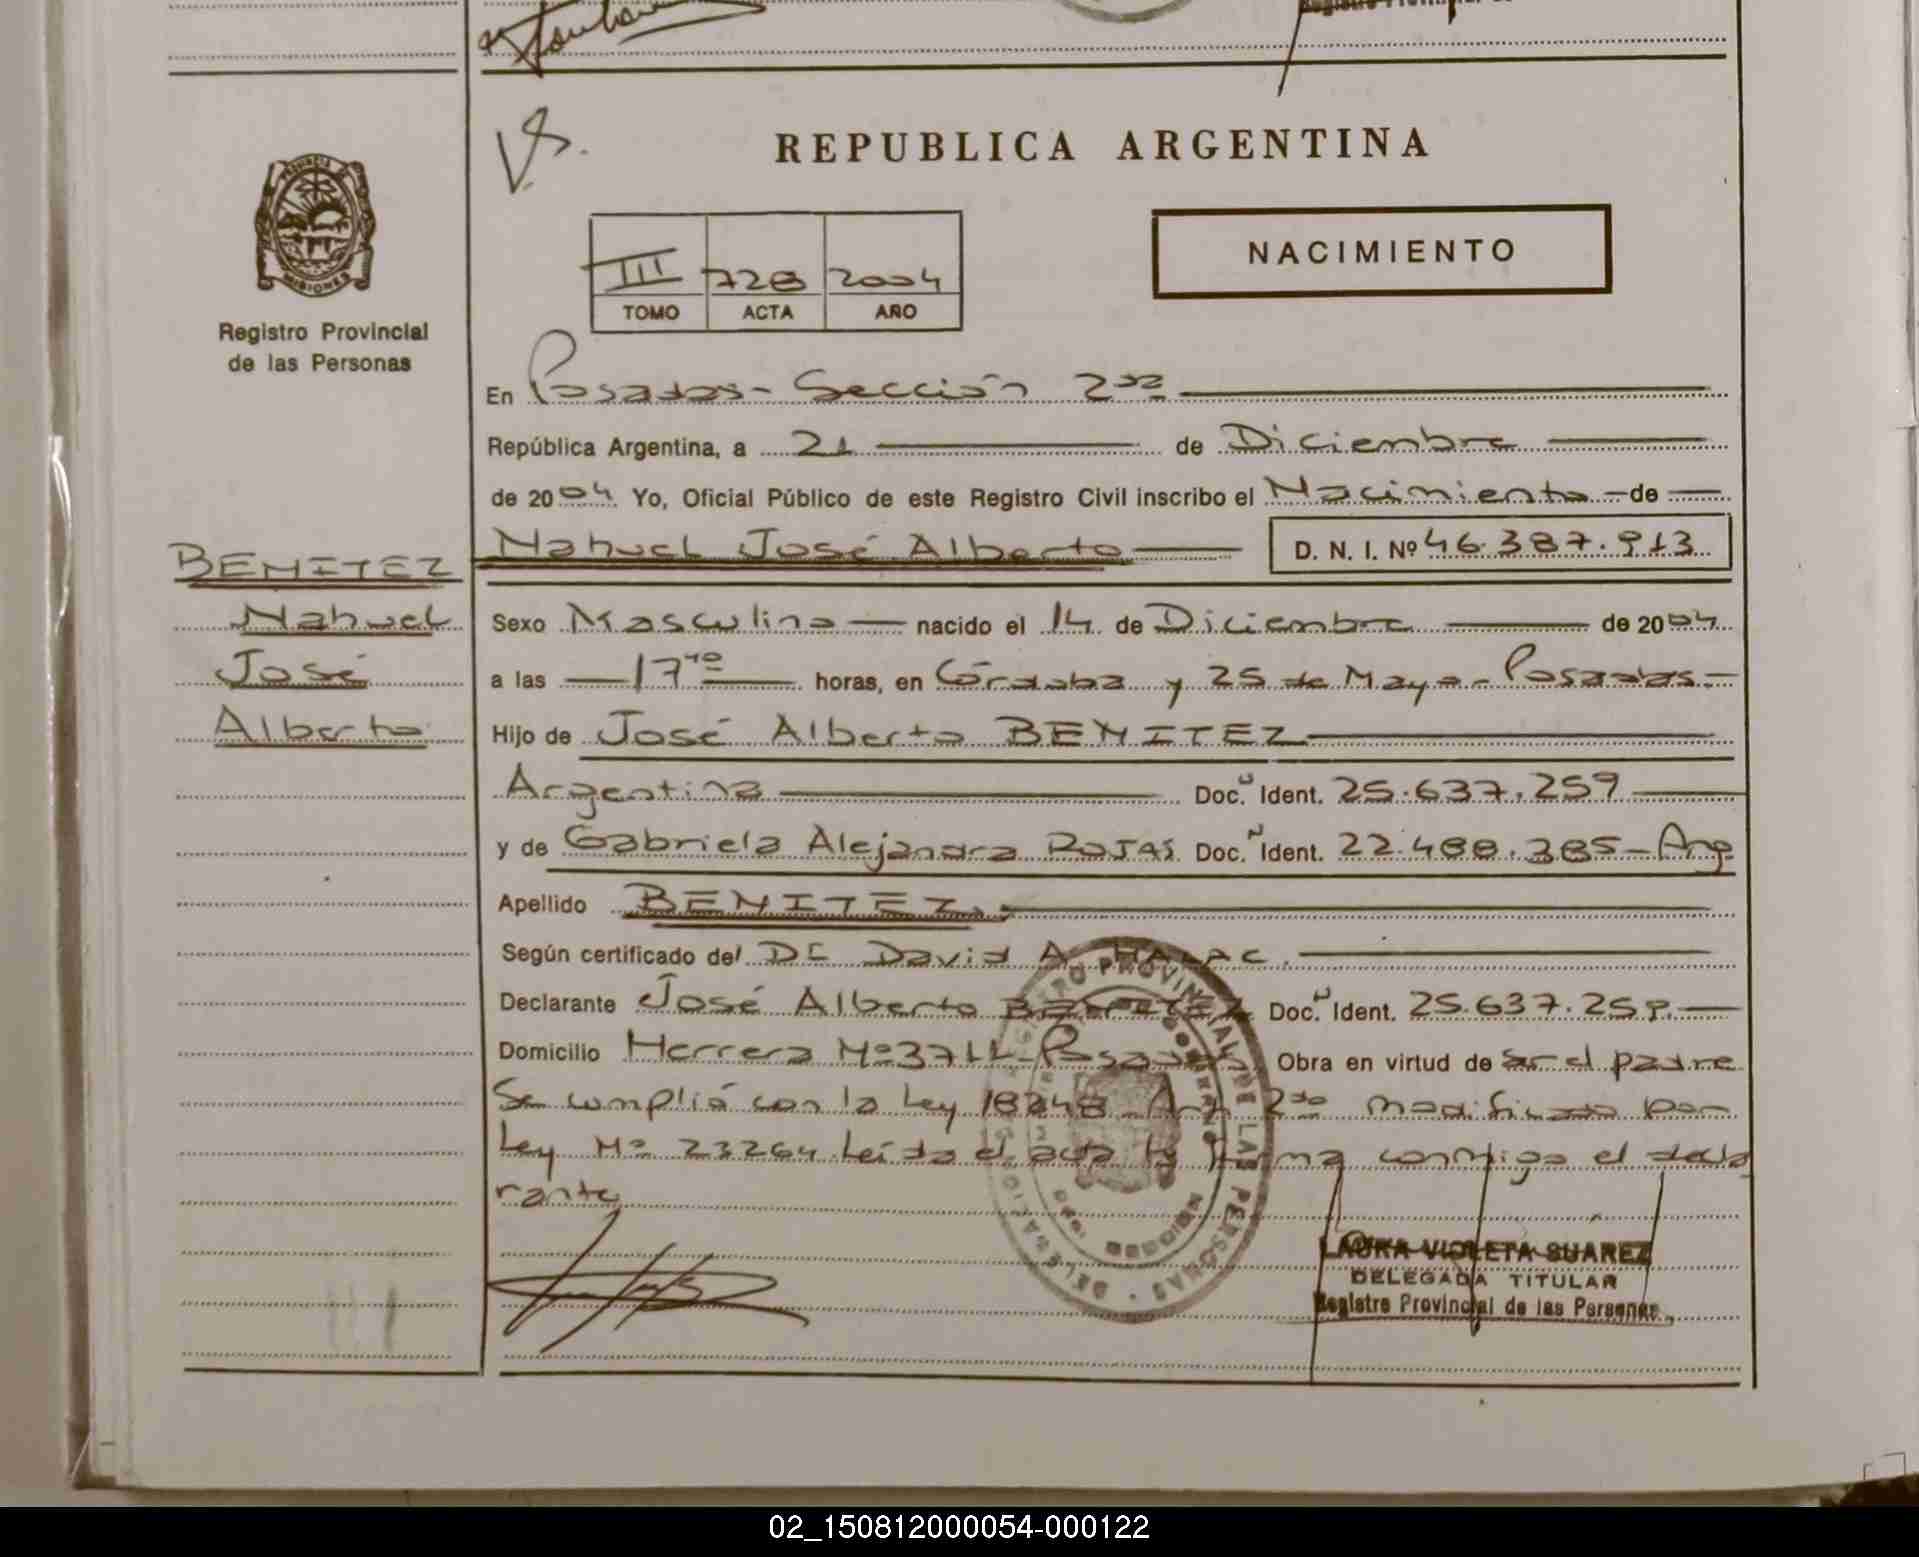 REPUBLICA ARGENTINA
PROVINCIA DE
MISIONES
Registro Provincial
de las Personas
III 728 2004
TOMO ACTA AÑO
NACIMIENTO
En Posadas - Sección 2da
República Argentina, a 21 de Diciembre
de 2004 Yo, Oficial Público de este Registro Civil inscribo el Nacimiento de
Nahuel José Alberto D. N. I. Nº 46.387.913
BENITEZ
Nahuel
José
Alberto
Sexo Masculino nacido el 14 de Diciembre de 2004
a las 17 40 horas, en Córdoba y 25 de Mayo - Posadas.-
Hijo de José Alberto BENITEZ
Argentina Doc. Ident. 25.637.259
y de Gabriela Alejandra ROJAS Doc. Ident. 22.488.385 - Arg.
Apellido BENITEZ.
Según certificado del Dr David A. HALAC.
Declarante José Alberto BENITEZ Doc. Ident. 25.637.259.-
Domicilio Herrera Nº 3711 - Posadas Obra en virtud de ser el padre
Se cumplió con la Ley 18248 Art 2do modificado por
Ley Nº 23264 Leída el acta la firma conmigo el decla
rante
REGISTRO PROVINCIAL DE LAS PERSONAS
LAURA VIOLETA SUAREZ
DELEGADA TITULAR
Registro Provincial de las Personas
02_150812000054-000122